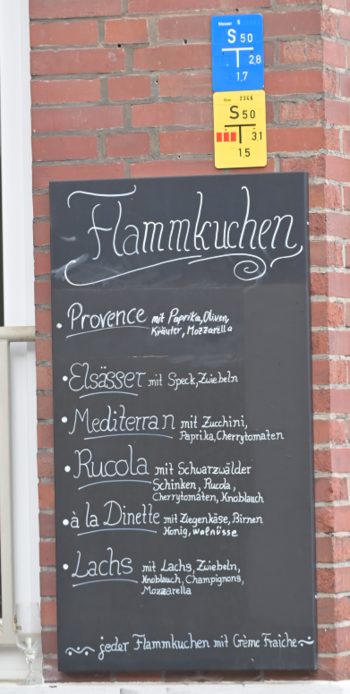 Wasser 6
S 50
2,8
1,7
Gas 2346
S 50
3,1
1.5
Flammkuchen
• Provence mit Paprika, Oliven,
Kräuter, Mozzarella
• Elsässer mit Speck, Zwiebeln
• Mediterran mit Zucchini,
Paprika, Cherrytomaten
• Rucola mit Schwarzwälder
Schinken, Rucola,
Cherrytomaten, Knoblauch
• à la Dinette mit Ziegenkäse, Birnen
Honig, walnüsse
• Lachs mit Lachs, Zwiebeln,
Knoblauch, Champignons,
Mozzarella
jeder Flammkuchen mit Crème Fraîche